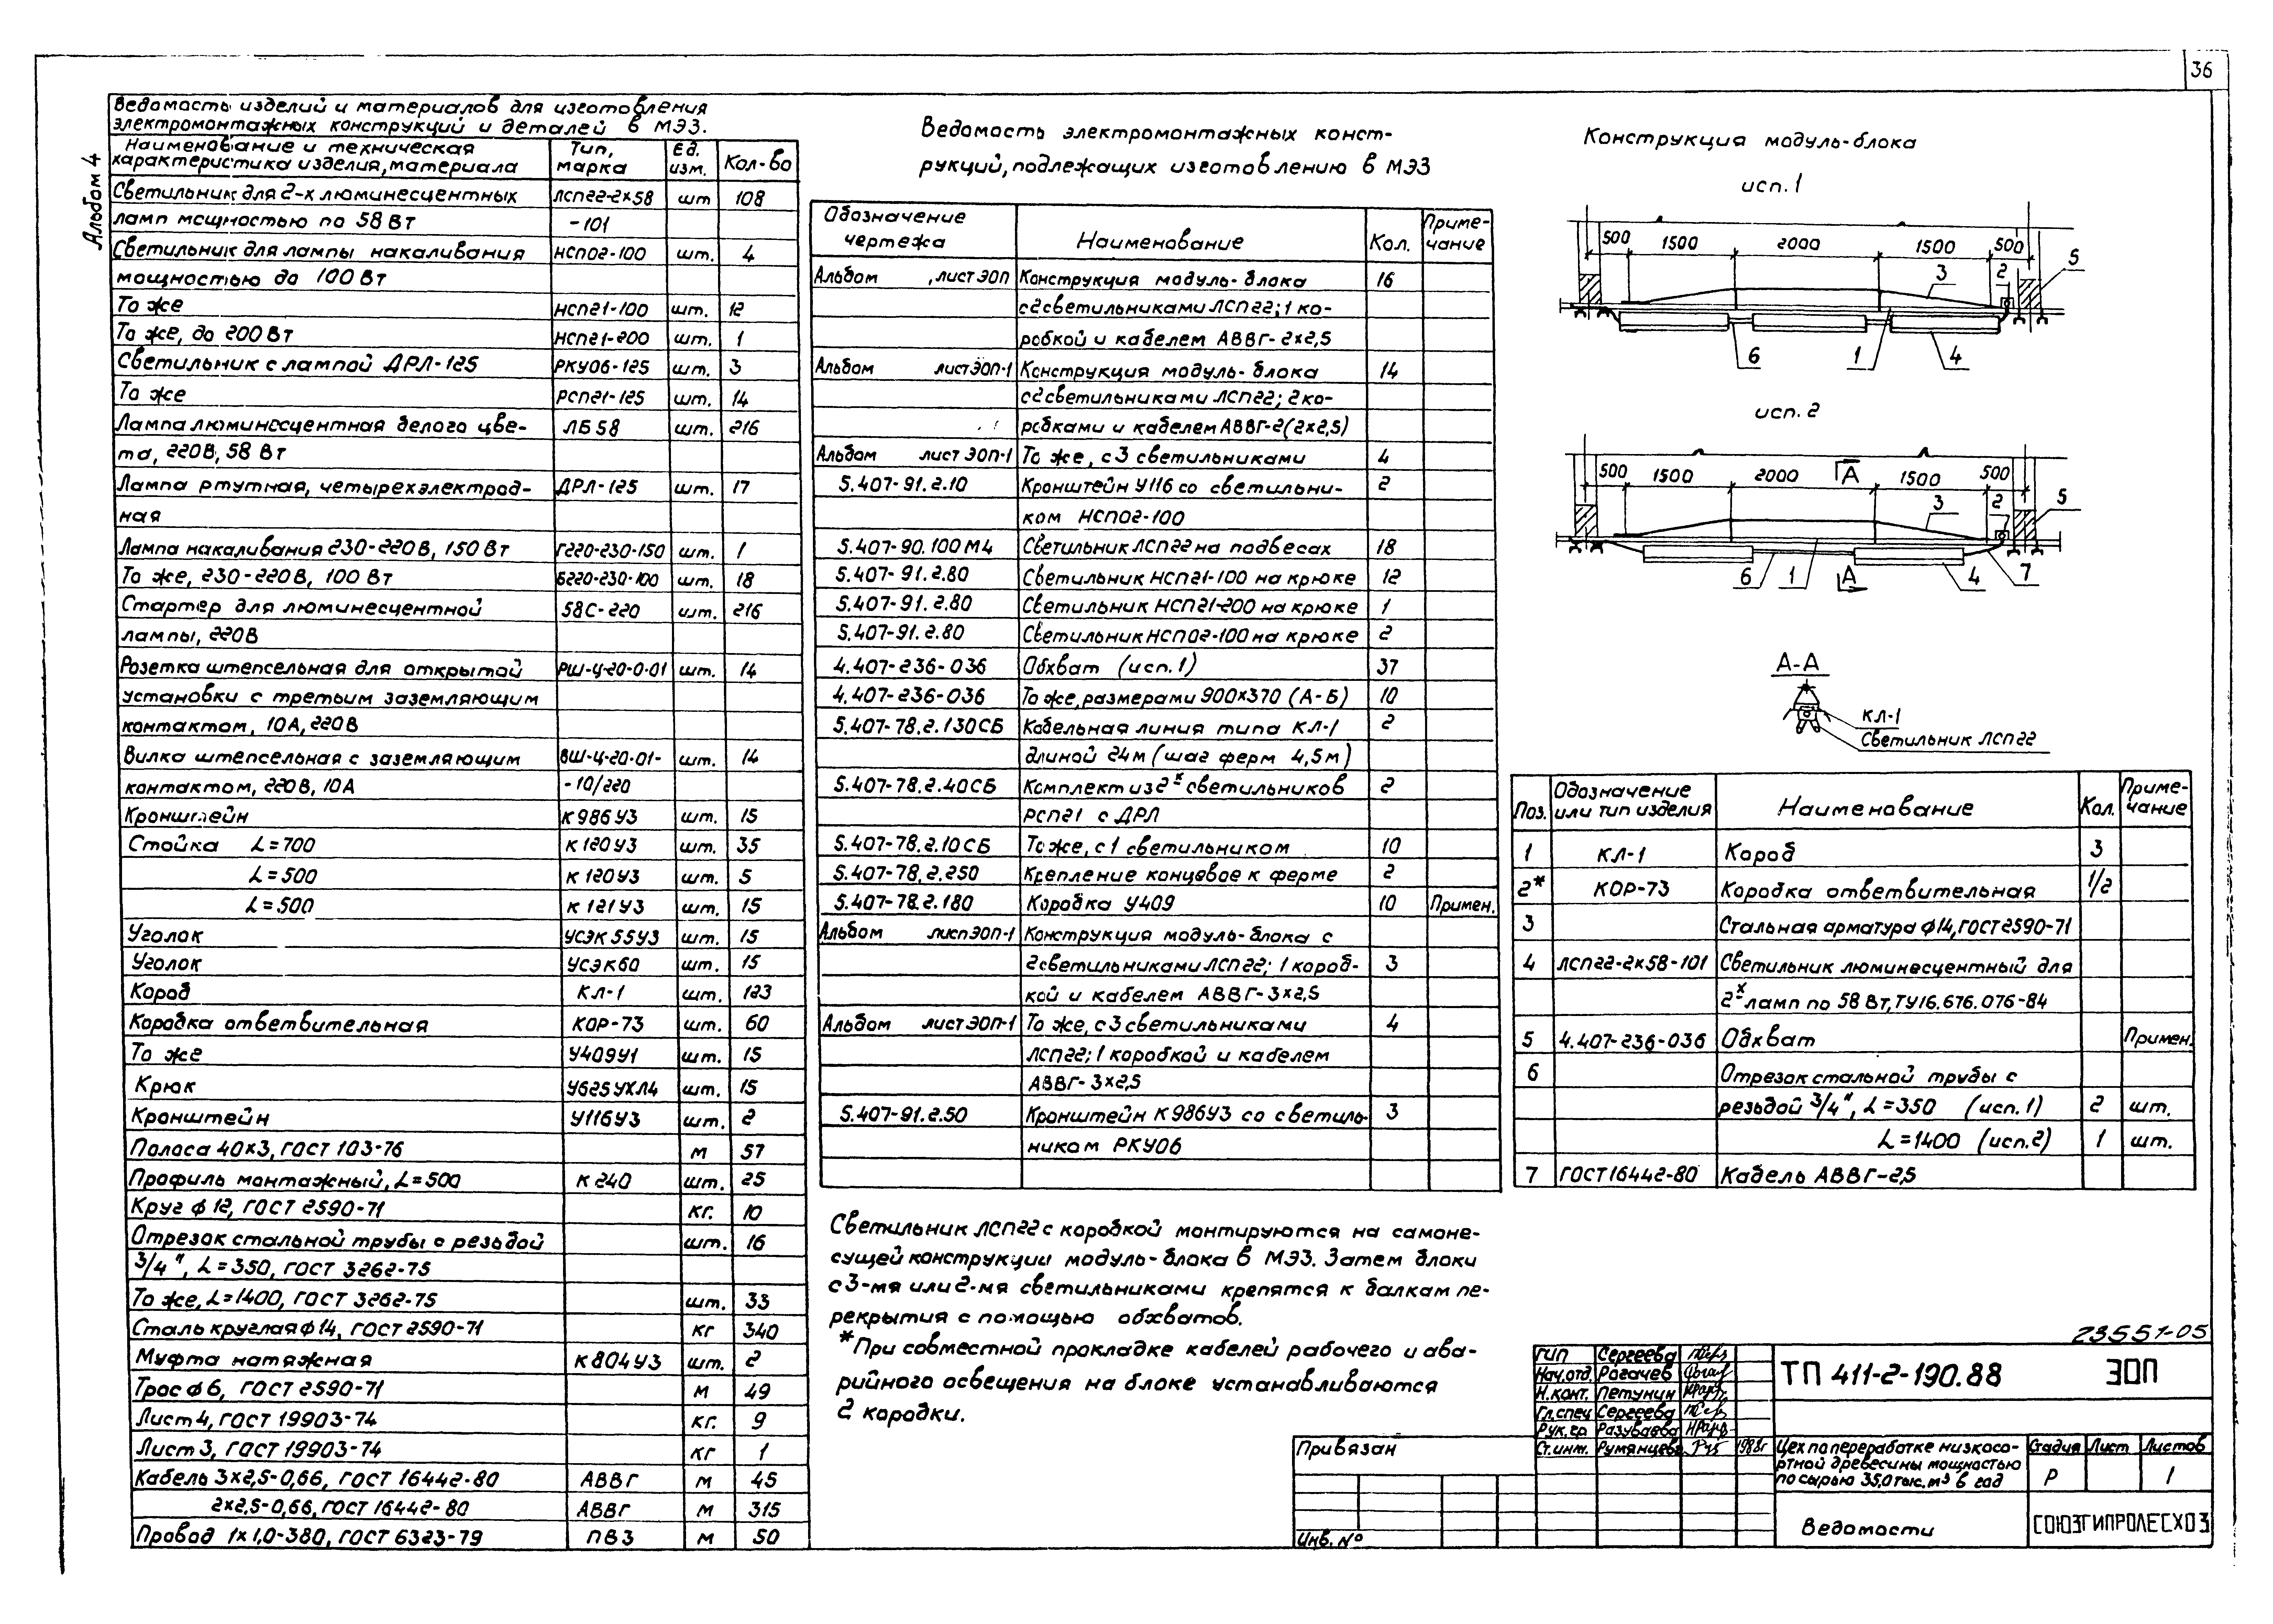 36
Альбом 4
Ведомость изделий и материалов для изготовления
электромонтажных конструкций и деталей в МЭЗ.
Наименование и техническая характеристика изделия, материала Тип, марка Ед. изм. Кол-во
Светильник для 2-х люминесцентных ЛСП22-2х58 шт 108
ламп мощностью по 58 Вт -101
Светильник для лампы накаливания НСП02-100 шт. 4
мощностью до 100 Вт
То же НСП21-100 шт. 12
То же, до 200 Вт НСП21-200 шт. 1
Светильник с лампой ДРЛ-125 РКУ06-125 шт. 3
То же РСП21-125 шт. 14
Лампа люминесцентная белого цве- ЛБ 58 шт. 216
та, 220В, 58 Вт
Лампа ртутная, четырехэлектрод- ДРЛ-125 шт. 17
ная
Лампа накаливания 230-220В, 150 Вт Г220-230-150 шт. 1
То же, 230-220В, 100 Вт Б220-230-100 шт. 18
Стартер для люминесцентной 58С-220 шт. 216
лампы, 220В
Розетка штепсельная для открытой РШ-Ц-20-0-01 шт. 14
установки с третьим заземляющим
контактом, 10А, 220В
Вилка штепсельная с заземляющим ВШ-Ц-20-01- шт. 14
контактом, 220В, 10А -10/220
Кронштейн К986У3 шт. 15
Стойка L=700 К120У3 шт. 35
L=500 К120У3 шт. 5
L=500 К121У3 шт. 15
Уголок УСЭК 55У3 шт. 15
Уголок УСЭК60 шт. 15
Короб КЛ-1 шт. 123
Коробка ответвительная КОР-73 шт. 60
То же У409У1 шт. 15
Крюк У625УХЛ4 шт. 15
Кронштейн У116У3 шт. 2
Полоса 40х3, ГОСТ 103-76 м 57
Профиль монтажный, L=500 К240 шт. 25
Круг ф12, ГОСТ 2590-71 кг. 10
Отрезок стальной трубы с резьбой шт. 16
3/4", L=350, ГОСТ 3262-75
То же, L=1400, ГОСТ 3262-75 шт. 33
Сталь круглая ф14, ГОСТ 2590-71 кг 340
Муфта натяжная К804У3 шт. 2
Трос ф6, ГОСТ 2590-71 м 49
Лист 4, ГОСТ 19903-74 кг. 9
Лист 3, ГОСТ 19903-74 кг 1
Кабель 3х2,5-0,66, ГОСТ 16442-80 АВВГ м 45
2х2,5-0,66, ГОСТ 16442-80 АВВГ м 315
Провод 1х1,0-380, ГОСТ 6323-79 ПВ3 м 50
Ведомость электромонтажных конст-
рукций, подлежащих изготовлению в МЭЗ
Обозначение чертежа Наименование Кол. Приме-чание
Альбом , лист ЭОП Конструкция модуль-блока 16
с 2 светильниками ЛСП22; 1 ко-
робкой и кабелем АВВГ-2х2,5
Альбом лист ЭОП-1 Конструкция модуль-блока 14
с 2 светильниками ЛСП22; 2 ко-
робками и кабелем АВВГ-2(2х2,5)
Альбом лист ЭОП-1 То же, с 3 светильниками 4
5.407-91.2.10 Кронштейн У116 со светильни- 2
ком НСП02-100
5.407-90.100М4 Светильник ЛСП22 на подвесах 18
5.407-91.2.80 Светильник НСП21-100 на крюке 12
5.407-91.2.80 Светильник НСП21-200 на крюке 1
5.407-91.2.80 Светильник НСП02-100 на крюке 2
4.407-236-036 Обхват (исп.1) 37
4.407-236-036 То же, размерами 900х370 (А-Б) 10
5.407-78.2.130СБ Кабельная линия типа КЛ-1 2
длиной 24м (шаг ферм 4,5м)
5.407-78.2.40СБ Комплект из 2х светильников 2
РСП21 с ДРЛ
5.407-78.2.10СБ То же, с 1 светильником 10
5.407-78.2.250 Крепление концевое к ферме 2
5.407-78.2.180 Коробка У409 10 Примен.
Альбом лист ЭОП-1 Конструкция модуль-блока с
2 светильниками ЛСП22; 1 короб- 3
кой и кабелем АВВГ-3х2,5
Альбом лист ЭОП-1 То же, с 3 светильниками 4
ЛСП22; 1 коробкой и кабелем
АВВГ-3х2,5
5.407-91.2.50 Кронштейн К986У3 со светиль- 3
ником РКУ06
Светильник ЛСП22 с коробкой монтируются на самоне-
сущей конструкции модуль-блока в МЭЗ. Затем блоки
с 3-мя или 2-мя светильниками крепятся к балкам пе-
рекрытия с помощью обхватов.
*При совместной прокладке кабелей рабочего и ава-
рийного освещения на блоке устанавливаются
2 коробки.
Конструкция модуль-блока
исп. 1
500 1500 2000 1500 500
3 2 5
6 1 4
исп. 2
500 1500 2000 А 1500 500
3 2 5
6 1 А 4 7
А-А
КЛ-1
Светильник ЛСП22
Поз. Обозначение или тип изделия Наименование Кол. Приме-чание
1 КЛ-1 Короб 3
2* КОР-73 Коробка ответвительная 1/2
3 Стальная арматура ф14, ГОСТ 2590-71
4 ЛСП22-2х58-101 Светильник люминесцентный для
2х ламп по 58 Вт, ТУ16.676.076-84
5 4.407-236-036 Обхват Примен.
6 Отрезок стальной трубы с
резьбой 3/4", L=350 (исп.1) 2 шт.
L=1400 (исп.2) 1 шт.
7 ГОСТ 16442-80 Кабель АВВГ-2,5
23551-05
ГИП Сергеева
Нач.отд. Рогачев
Н.конт. Петунин
Гл.спец Сергеева
Рук.гр Разуваева
Ст.инж. Румянцева 1988г
ТП 411-2-190.88 ЭОП
Цех по переработке низкосо-
ртной древесины мощностью
по сырью 35,0 тыс. м3 в год
Стадия Лист Листов
Р 1
Ведомости
СОЮЗГИПРОЛЕСХОЗ
Привязан
Инв. №